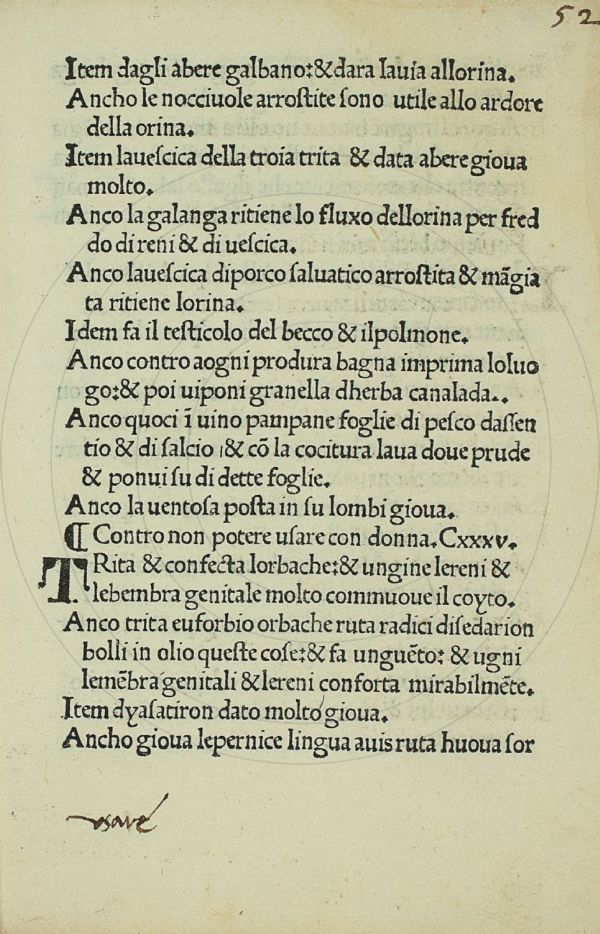 52
Item dagli abere galbano:& dara lauia allorina.
Ancho le nocciuole arroſtite ſono utile allo ardore
della orina.
Item laueſcica della troia trita & data abere gioua
molto.
Anco la galanga ritiene lo fluxo dellorina per fred
do di reni & di ueſcica.
Anco laueſcica diporco ſaluatico arroſtita & mãgia
ta ritiene lorina.
Idem fa il teſticolo del becco & ilpolmone.
Anco contro aogni produra bagna imprima loluo
go:& poi uiponi granella dherba canalada..
Anco quoci ĩ uino pampane foglie di peſco daſſen
tio & di ſalcio ı& cõ la cocitura laua doue prude
& ponui ſu di dette foglie.
Anco la uentoſa poſta in ſu lombi gioua.
¶ Contro non potere uſare con donna.Cxxxv.
TRita & confecta lorbache:& ungine lereni &
lebembra genitale molto commuoue il coyto.
Anco trita euforbio orbache ruta radici diſedarion
bolli in olio queſte coſe:& fa unguẽto: & ugni
lemẽbra genitali & lereni conforta mirabilmẽte.
Item dyaſatiron dato molto gioua.
Ancho gioua lepernice lingua auis ruta huoua ſor